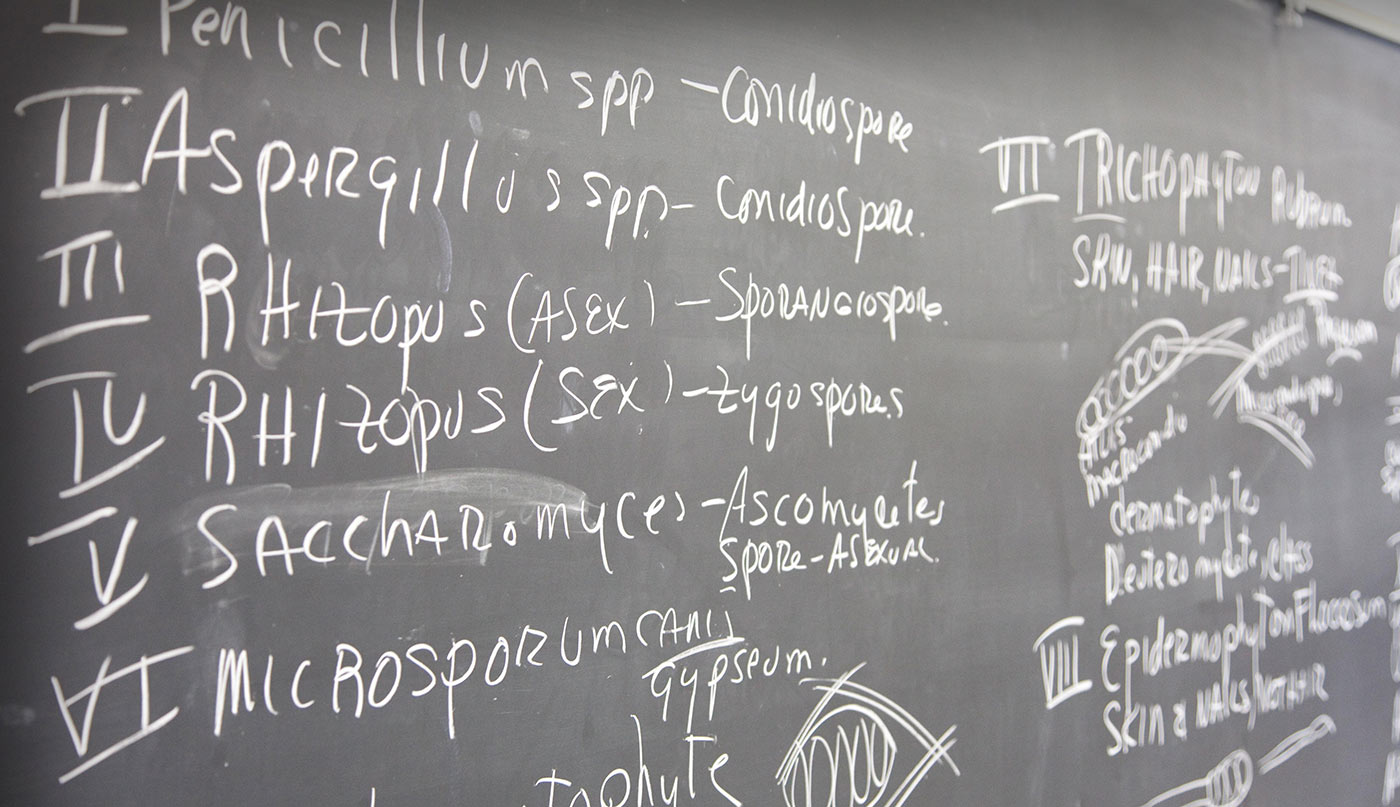 I Penicillium spp - Conidiospore
II Aspergillus spp. - Conidiospore.
III RHIZOPUS (ASEX) - SPORANGIOSPORE.
IV RHIZOPUS (SEX) - Zygospores
V SACCHAROmyces - Ascomycetes
Spore - ASEXUAL.
VI MICROSPORUM
Gypseum.
tophyte
VII TRICHOPHYTON Rubrum
SKIN, HAIR, NAILS -
dermatophyte
VIII Epidermophyton Floccosum
Skin & NAILS, NOT HAIR